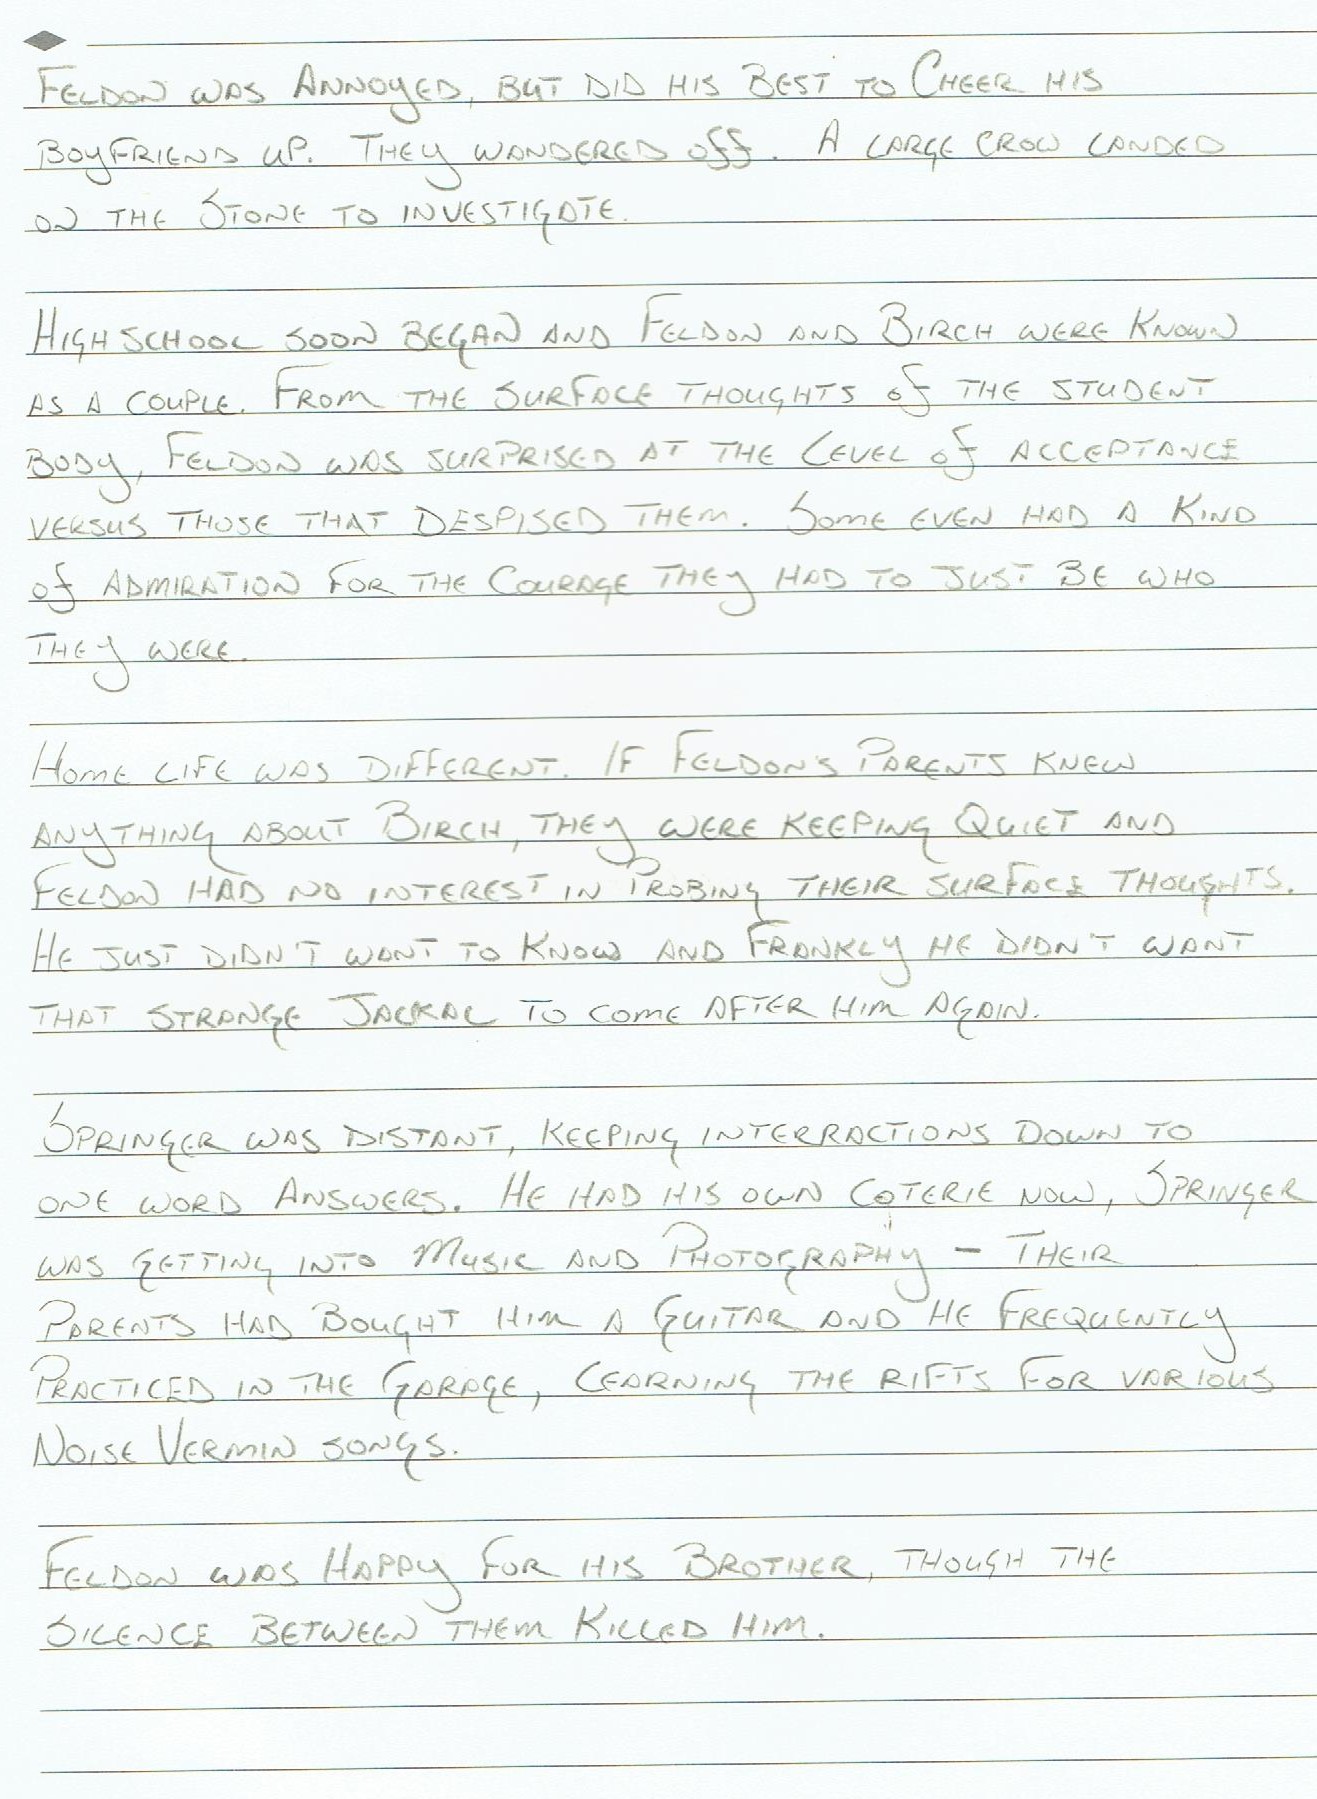 Feldon was Annoyed, but did his Best to Cheer his
boyfriend up. They wandered off. A large crow landed
on the Stone to investigate.
Highschool soon began and Feldon and Birch were Known
as a couple. From the surface thoughts of the student
body, Feldon was surprised at the Level of acceptance
versus those that despised them. Some even had a Kind
of admiration for the Courage they had to just be who
they were.
Home life was different. If Feldon's Parents knew
anything about Birch, they were keeping Quiet and
Feldon had no interest in Probing their surface thoughts.
He just didn't want to Know and Frankly he didn't want
that strange Jackal to come after him again.
Springer was distant, keeping interractions down to
one word Answers. He had his own coterie now, Springer
was getting into Music and Photography - Their
Parents had Bought him a Guitar and he Frequently
Practiced in the Garage, Learning the rifts for various
Noise Vermin songs.
Feldon was Happy for his Brother, though the
silence between them Killed him.